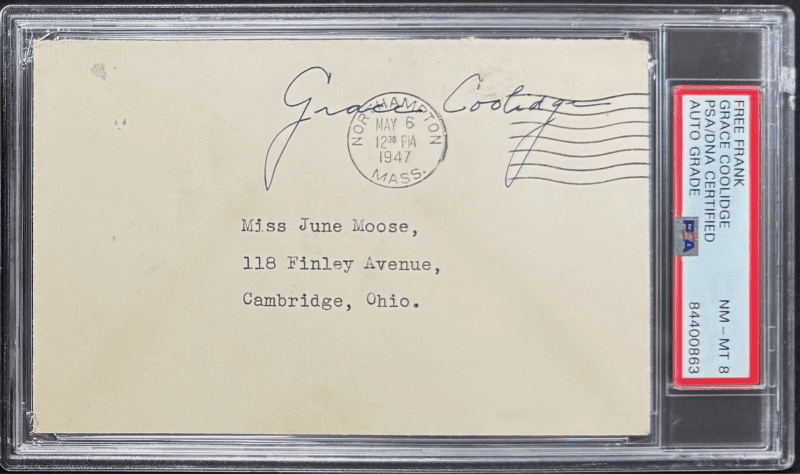 Grace Coolidge
NORTHAMPTON
MAY 6
12 30 PM
1947
MASS.
Miss June Moose,
118 Finley Avenue,
Cambridge, Ohio.
FREE FRANK
GRACE COOLIDGE
PSA/DNA CERTIFIED
AUTO GRADE
NM - MT 8
84400863
PSA